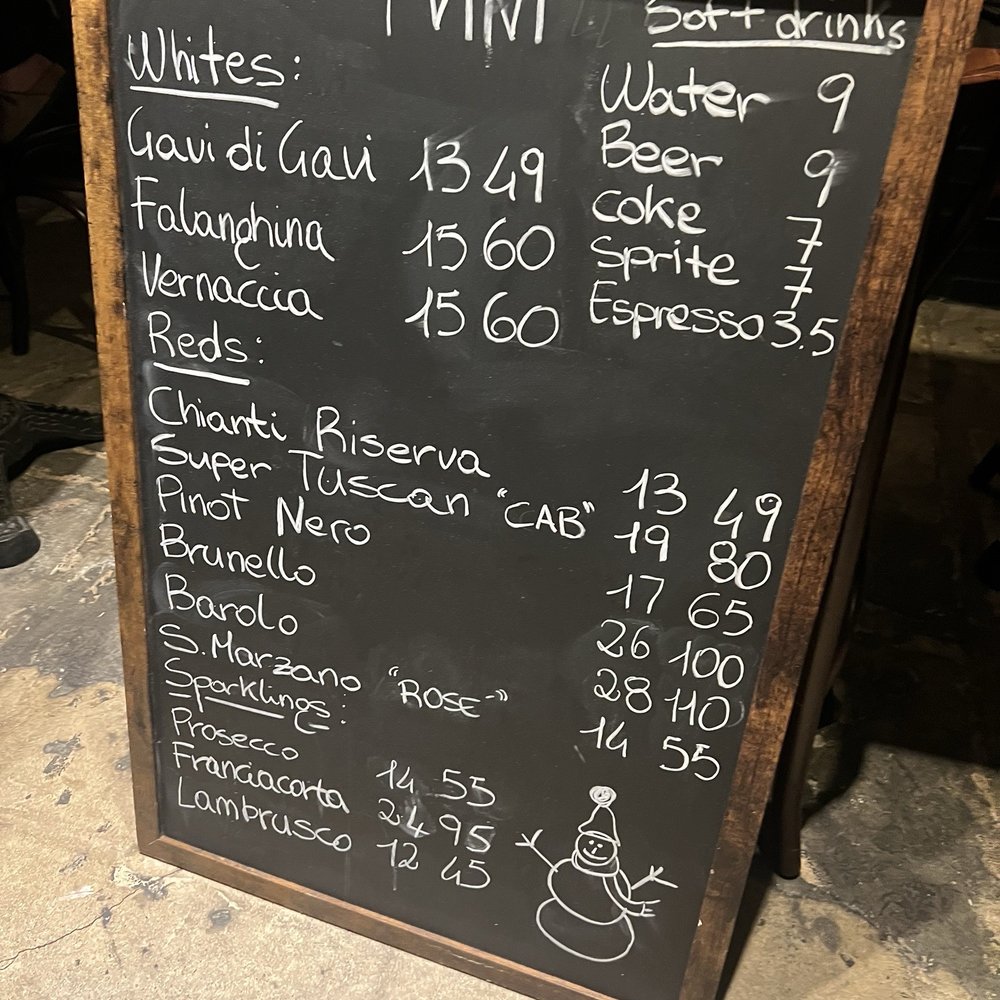 Soft drinks
Whites:
Gavi di Gavi 13 49
Falanghina 15 60
Vernaccia 15 60
Water 9
Beer 9
Coke 7
Sprite 7
Espresso 3.5
Reds:
Chianti Riserva 13 49
Super Tuscan "CAB" 19 80
Pinot Nero 17 65
Brunello 26 100
Barolo 28 110
S. Marzano "ROSE" 14 55
Sparklings:
Prosecco 14 55
Franciacorta 24 95
Lambrusco 12 45